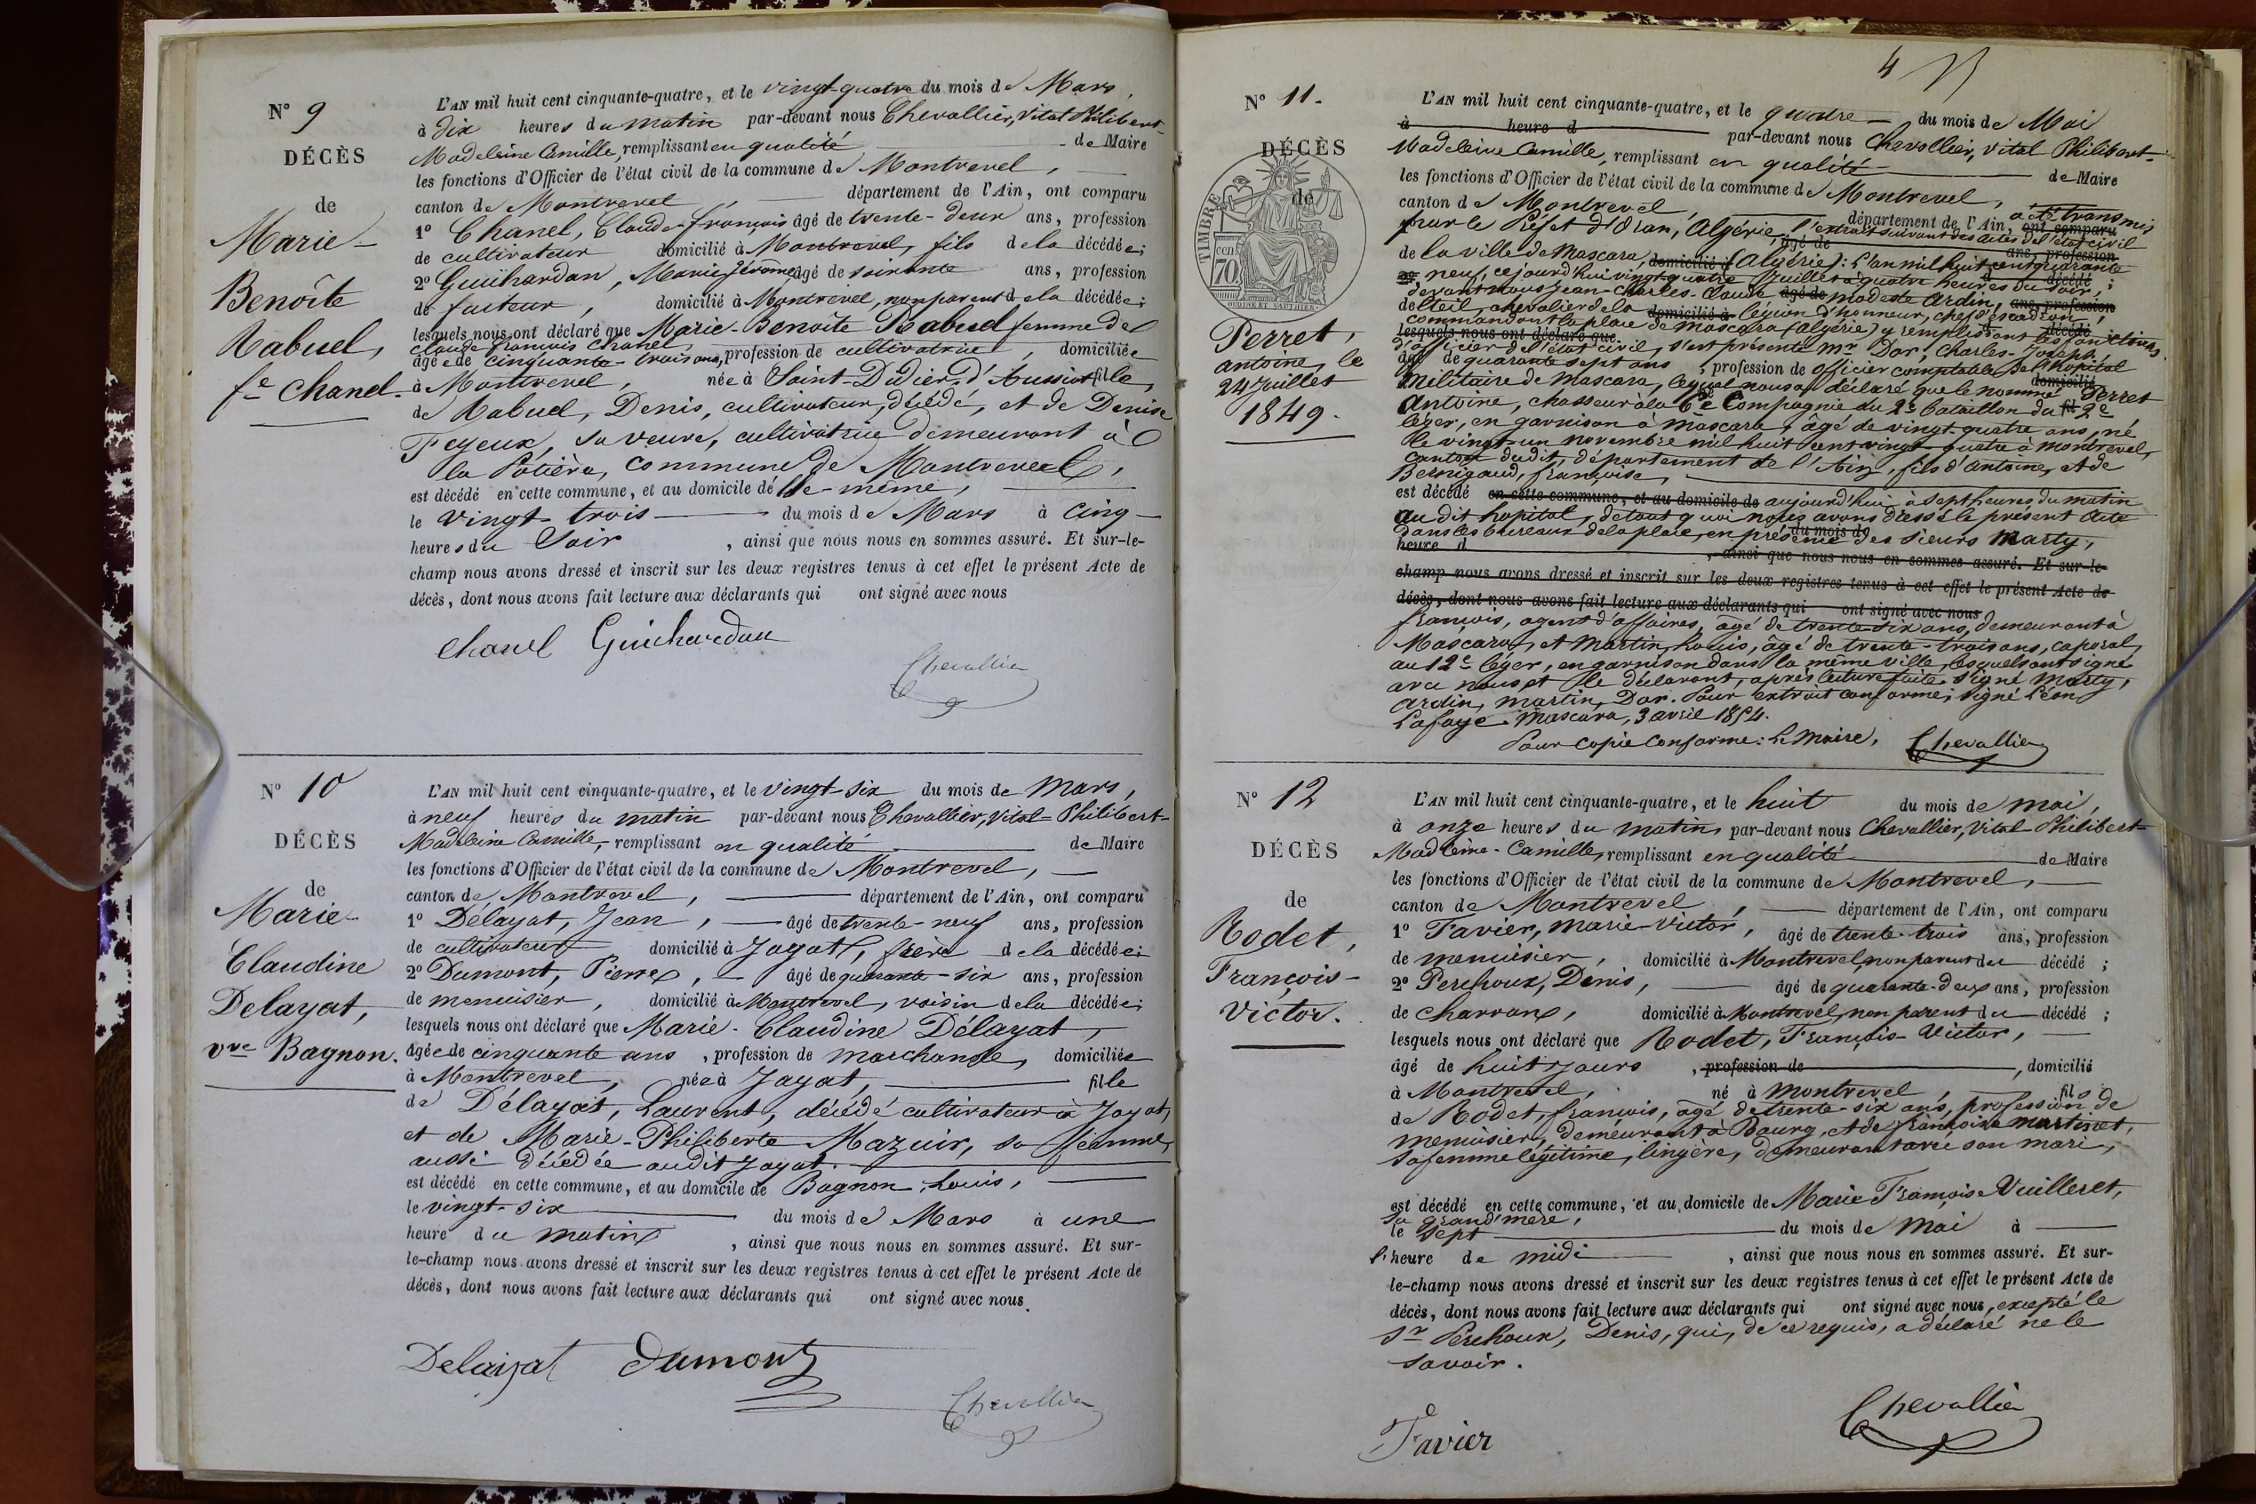 N° 9
DÉCÈS
de
Marie-
Benoîte
Rabuel,
fe Chanel.
L'AN mil huit cent cinquante-quatre, et le vingt-quatre du mois de Mars,
à dix heures du matin par-devant nous Chevallier, Vital Philibert-
Madeleine Camille, remplissant en qualité de Maire
les fonctions d'Officier de l'état civil de la commune de Montrevel,
canton de Montrevel, département de l'Ain, ont comparu
1° Chanel, Claude-françois âgé de trente-deux ans, profession
de cultivateur domicilié à Montrevel, fils de la décédée;
2° Guichardan, Marie Jérôme âgé de soixante ans, profession
de facteur, domicilié à Montrevel, non parent de la décédée;
lesquels nous ont déclaré que Marie-Benoîte Rabuel femme de
Claude François Chanel,
âgée de cinquante-trois ans, profession de cultivatrice, domiciliée
à Montrevel, née à Saint-Didier-d'Aussiat fille
de Rabuel, Denis, cultivateur, décédé, et de Denise
Feyeux, sa veuve, cultivatrice demeurant à
la Potière, commune de Montrevel,
est décédé en cette commune, et au domicile d'elle-même,
le vingt-trois du mois de Mars à cinq
heures du Soir, ainsi que nous nous en sommes assuré. Et sur-le-
champ nous avons dressé et inscrit sur les deux registres tenus à cet effet le présent Acte de
décès, dont nous avons fait lecture aux déclarants qui ont signé avec nous
Chanel Guichardan
Chevallier
N° 10
DÉCÈS
de
Marie-
Claudine
Delayat,
vve Bagnon.
L'AN mil huit cent cinquante-quatre, et le vingt-six du mois de Mars,
à neuf heures du matin par-devant nous Chevallier, Vital-Philibert-
Madeleine Camille, remplissant en qualité de Maire
les fonctions d'Officier de l'état civil de la commune de Montrevel,
canton de Montrevel, département de l'Ain, ont comparu
1° Délayat, Jean, âgé de trente-neuf ans, profession
de cultivateur domicilié à Jayat, frère de la décédée;
2° Dumont, Pierre, âgé de quarante-six ans, profession
de menuisier, domicilié à Montrevel, voisin de la décédée;
lesquels nous ont déclaré que Marie-Claudine Délayat,
âgée de cinquante ans, profession de marchande, domiciliée
à Montrevel, née à Jayat, fille
de Délayat, Laurent, décédé cultivateur à Jayat,
et de Marie-Philiberte Mazuir, sa femme,
aussi décédée audit Jayat.
est décédé en cette commune, et au domicile de Bagnon, Louis,
le vingt-six du mois de Mars à une
heure du matin, ainsi que nous nous en sommes assuré. Et sur-
le-champ nous avons dressé et inscrit sur les deux registres tenus à cet effet le présent Acte de
décès, dont nous avons fait lecture aux déclarants qui ont signé avec nous.
Delaizat Dumont
Chevallier
4
N° 11.
DÉCÈS
de
TIMBRE
70
Perret,
antoine, le
24 Juillet
1849.
L'AN mil huit cent cinquante-quatre, et le quatre du mois de Mai
à heure d par-devant nous Chevallier, Vital Philibert-
Madeleine Camille, remplissant en qualité de Maire
les fonctions d'Officier de l'état civil de la commune de Montrevel,
canton de Montrevel, département de l'Ain, ont comparu a été transmis
par le Préfet d'Oran, Algérie, l'extrait suivant des actes de l'état civil
âgé de ans, profession
de la ville de Mascara, domicilié à (Algérie): L'an mil huit cent quarante
2° neuf, cejourd'hui vingt quatre Juillet à quatre heures du soir, d décédé;
devant nous Jean-Charles-Claude âgé de modeste Ardin, ans, profession
delteil, chevalier de la domicilié à légion d'honneur, chef d'escadron
commandant la place de Mascara (Algérie) y remplissant les fonctions d décédé
lesquels nous ont déclaré que
d'officier de l'état civil, s'est présenté mr Dor, Charles-Joseph,
âgé de quarante sept ans, profession de officier comptable de l'hôpital
domicilié
militaire de Mascara, lequel nous a déclaré que le nommé Perret
Antoine, chasseur à la 6e Compagnie du 2e bataillon du fil 2e
léger, en garnison à Mascara, âgé de vingt quatre ans, né
le vingt-un novembre mil huit cent vingt quatre à Montrevel,
canton dudit, département de l'Ain, fils d'antoine, et de
Bernigaud, françoise,
est décédé en cette commune, et au domicile de aujourd'hui à sept heures du matin
au dit hopital, de tout quoi nous avons dressé le présent acte
du mois de
dans les bureaux de la place, en présence des sieurs Marty,
heure d, ainsi que nous nous en sommes assuré. Et sur-le-
champ nous avons dressé et inscrit sur les deux registres tenus à cet effet le présent Acte de
décès, dont nous avons fait lecture aux déclarants qui ont signé avec nous
françois, agent d'affaires, âgé de trente-six ans, demeurant à
Mascara, et Martin, Louis, âgé de trente-trois ans, caporal
au 12e léger, en garnison dans la même ville, lesquels ont signé
avec nous et le déclarant, après lecture faite. Signé Marty,
Ardin, Martin, Dor. Pour extrait conforme; signé Léon
Lafaye. Mascara, 3 avril 1854.
Pour copie conforme: Le Maire, Chevallier
N° 12
DÉCÈS
de
Rodet,
François-
Victor.
L'AN mil huit cent cinquante-quatre, et le huit du mois de mai,
à onze heures du matin par-devant nous Chevallier, Vital-Philibert-
Madleine-Camille, remplissant en qualité de Maire
les fonctions d'Officier de l'état civil de la commune de Montrevel,
canton de Montrevel, département de l'Ain, ont comparu
1° Favier, Marie-Victor, âgé de trente-trois ans, profession
de menuisier, domicilié à Montrevel, non parent du décédé;
2° Perchoux, Denis, âgé de quarante-deux ans, profession
de charron, domicilié à Montrevel, non parent du décédé;
lesquels nous ont déclaré que Rodet, François-Victor,
âgé de huit jours, profession de, domicilié
à Montrevel, né à Montrevel, fils
de Rodet, françois, âgé de trente-six ans, profession de
menuisier, demeurant à Bourg, et de françoise Martinet,
sa femme légitime, lingère, demeurant avec son mari,
est décédé en cette commune, et au domicile de Marie Françoise Vuilleret,
sa grand'mère,
le sept du mois de Mai à
l'heure de midi, ainsi que nous nous en sommes assuré. Et sur-
le-champ nous avons dressé et inscrit sur les deux registres tenus à cet effet le présent Acte de
décès, dont nous avons fait lecture aux déclarants qui ont signé avec nous, excepté le
Sr Perchoux, Denis, qui, de ce requis, a déclaré ne le
savoir.
Favier
Chevallier